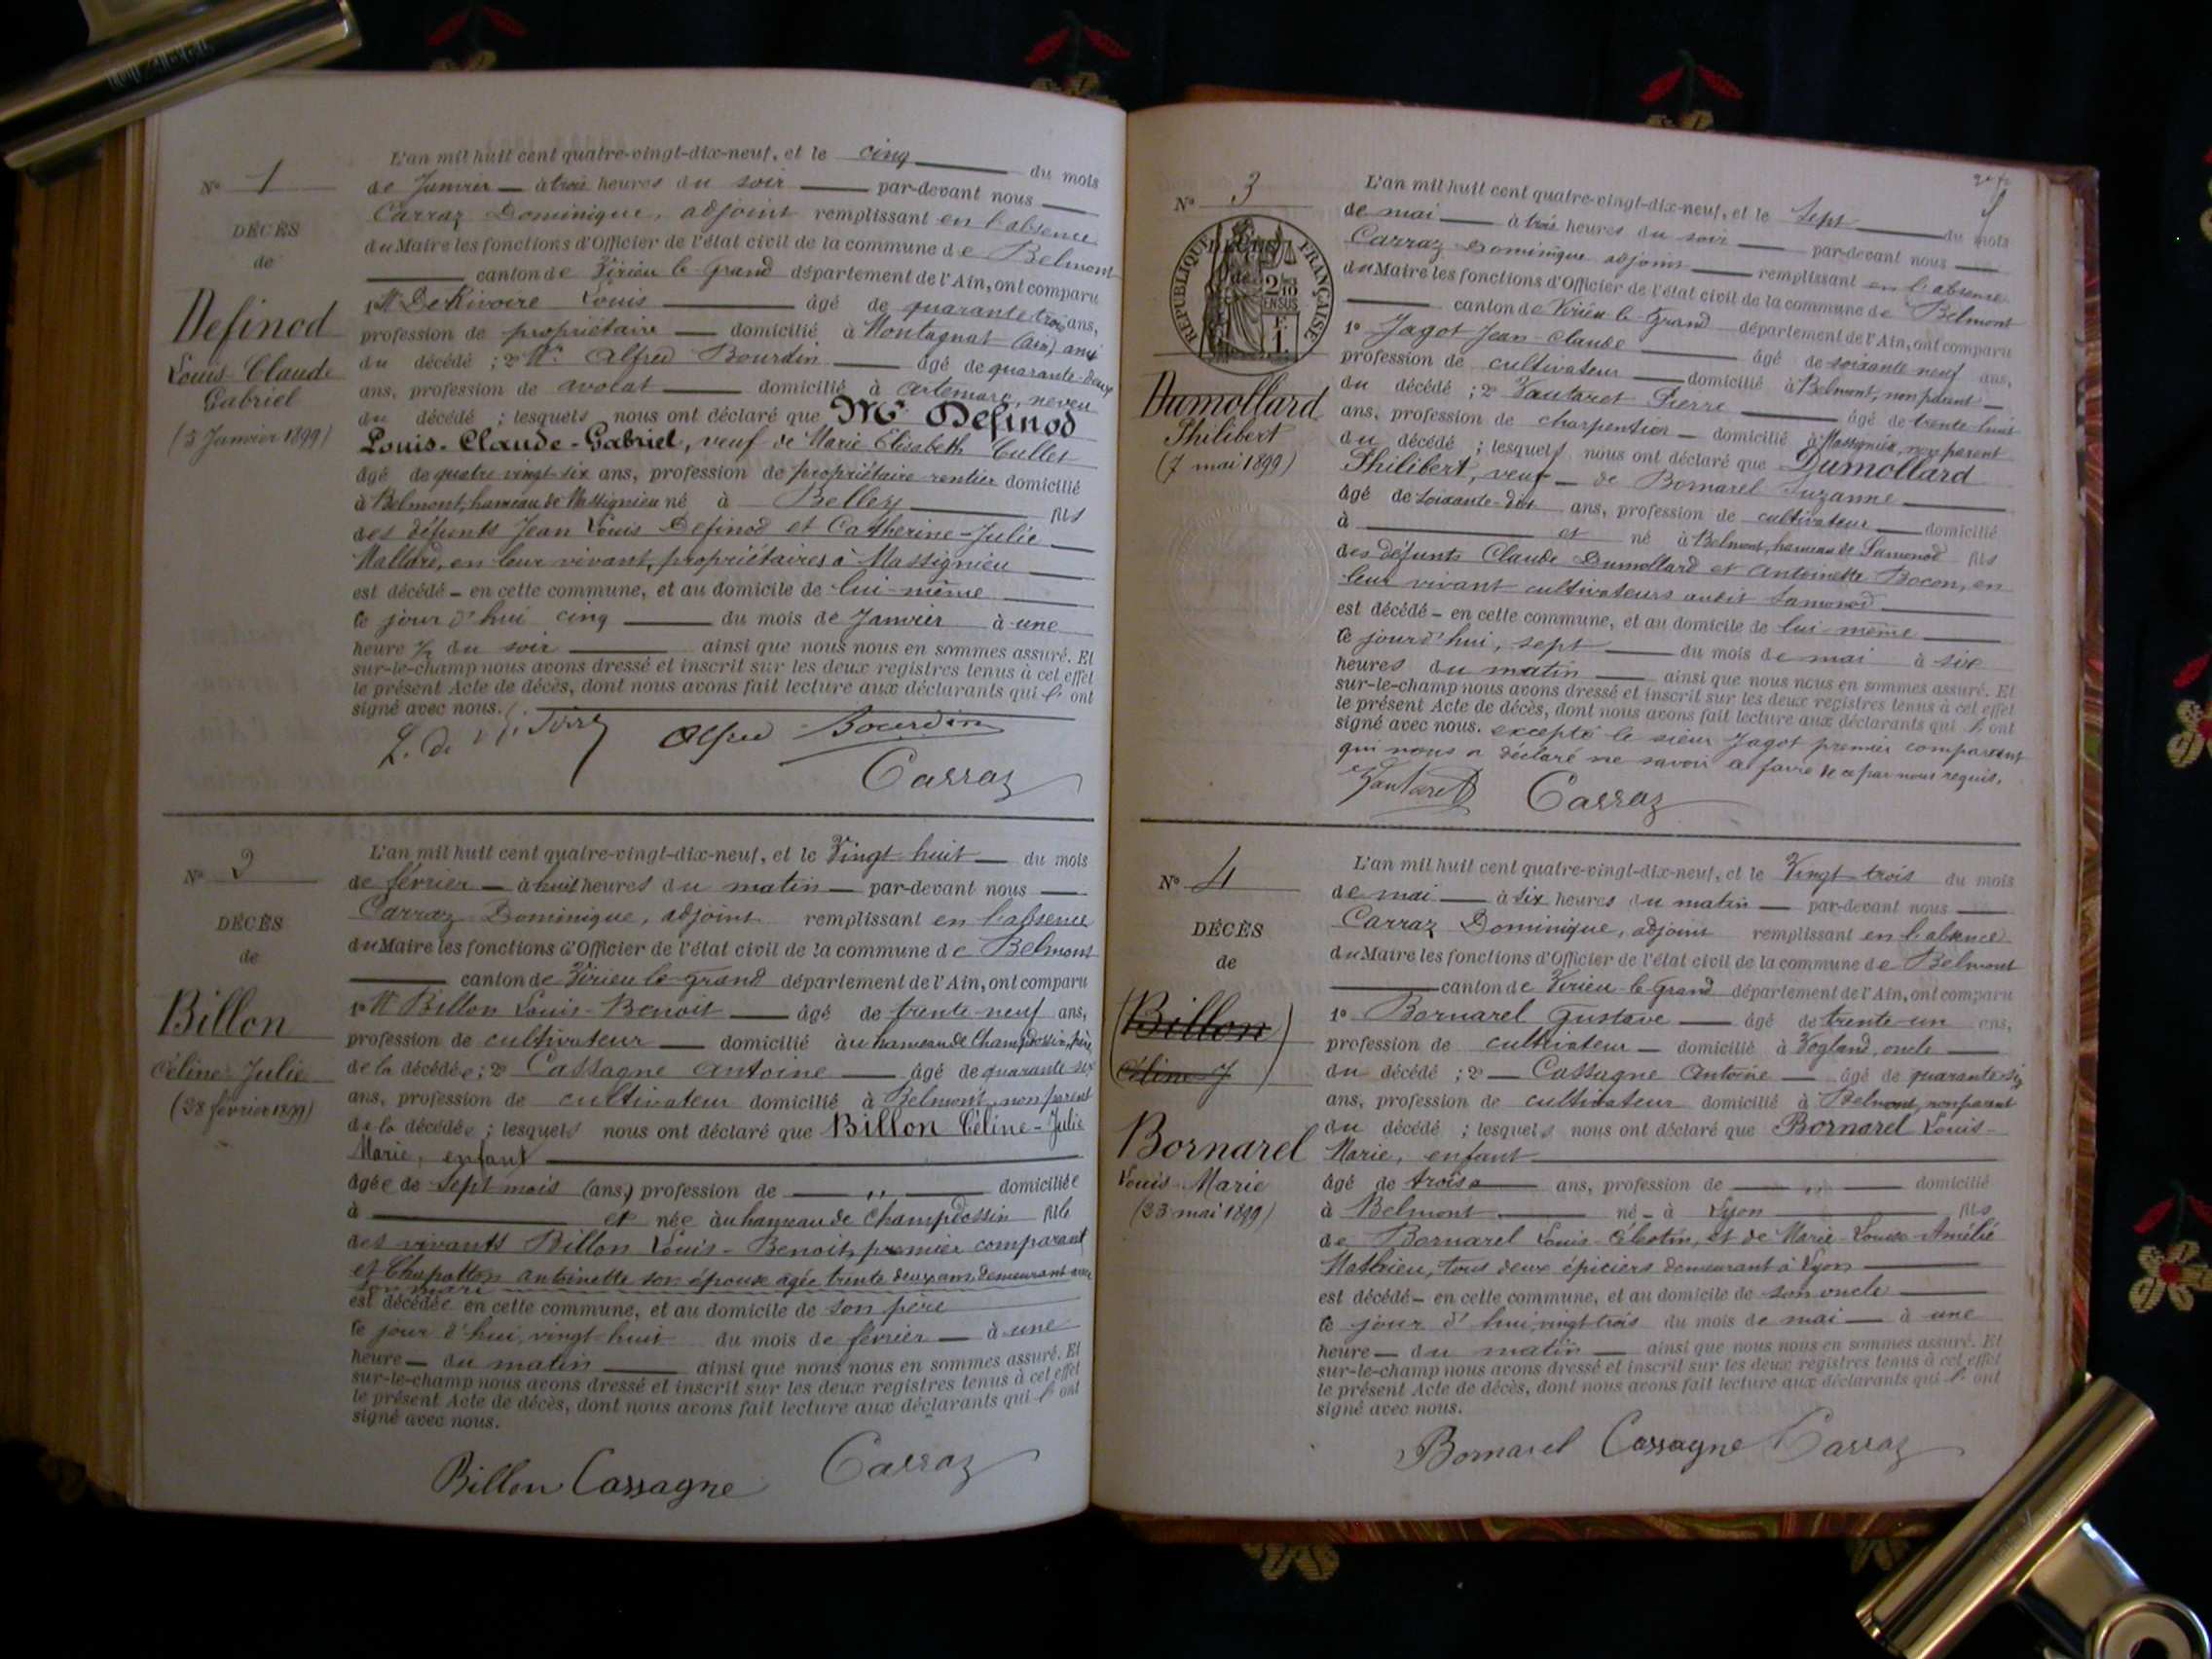 L'an mil huit cent quatre-vingt-dix-neuf, et le cinq du mois
N° 1
de Janvier à trois heures du soir par-devant nous
Carraz Dominique, adjoint remplissant en l'absence
DÉCÈS
du Maire les fonctions d'Officier de l'état civil de la commune de Belmont
de
canton de Virieu le Grand département de l'Ain, ont comparu
Definod
1° Mr De Rivoire Louis âgé de quarante trois ans,
profession de propriétaire domicilié à Montagnat (Ain) ami
Louis-Claude
du décédé ; 2° Mr Alfred Bourdin âgé de quarante-deux
Gabriel
ans, profession de avocat domicilié à Artemare, neveu
(5 Janvier 1899)
du décédé ; lesquels nous ont déclaré que Mr Definod
Louis-Claude-Gabriel, veuf de Marie Elisabeth Cullet
âgé de quatre vingt-six ans, profession de propriétaire-rentier domicilié
à Belmont, hameau de Massignieu né à Belley fils
des défunts Jean Louis Definod et Catherine-Julie
Mallard, en leur vivant, propriétaires à Massignieu
est décédé en cette commune, et au domicile de lui-même
le jour d'hui cinq du mois de Janvier à une
heure ½ du soir ainsi que nous nous en sommes assuré. Et
sur-le-champ nous avons dressé et inscrit sur les deux registres tenus à cet effet
le présent Acte de décès, dont nous avons fait lecture aux déclarants qui l'ont
signé avec nous.
L. de Alfred Bourdin
Carraz
L'an mil huit cent quatre-vingt-dix-neuf, et le Vingt huit du mois
N° 2
de février à huit heures du matin par-devant nous
Carraz Dominique, adjoint remplissant en l'absence
DÉCÈS
du Maire les fonctions d'Officier de l'état civil de la commune de Belmont
de
canton de Virieu le Grand département de l'Ain, ont comparu
Billon
1° Mr Billon Louis-Benoit âgé de trente-neuf ans,
profession de cultivateur domicilié au hameau de Champdossin, père
Céline-Julie
de la décédée ; 2° Cassagne Antoine âgé de quarante six
(28 février 1899)
ans, profession de cultivateur domicilié à Belmont, non parent
de la décédée ; lesquels nous ont déclaré que Billon Céline-Julie
Marie, enfant
âgée de sept mois (ans,) profession de " domiciliée
à et née au hameau de Champdossin fille
des vivants Billon Louis-Benoit, premier comparant
et Chapotton Antoinette son épouse agée trente deux ans demeurant avec
son mari
est décédée en cette commune, et au domicile de son père
le jour d'hui, vingt-huit du mois de février à une
heure du matin ainsi que nous nous en sommes assuré. Et
sur-le-champ nous avons dressé et inscrit sur les deux registres tenus à cet effet
le présent Acte de décès, dont nous avons fait lecture aux déclarants qui l'ont
signé avec nous.
Billon Cassagne Carraz
L'an mil huit cent quatre-vingt-dix-neuf, et le Sept du mois
N° 3
de mai à trois heures du soir par-devant nous
Carraz Dominique adjoint remplissant en l'absence
RÉPUBLIQUE FRANÇAISE
DÉCÈS
de
2/10
EN SUS
F.
1.
du Maire les fonctions d'Officier de l'état civil de la commune de Belmont
canton de Virieu le Grand département de l'Ain, ont comparu
1° Jagot Jean-Claude âgé de soixante-neuf ans,
profession de cultivateur domicilié à Belmont, non parent
Dumollard
du décédé ; 2° Vautaret Pierre âgé de trente-huit
Philibert
ans, profession de charpentier domicilié à Massignieu, non parent
(7 mai 1899)
du décédé ; lesquels nous ont déclaré que Dumollard
Philibert, veuf de Bornarel Suzanne
âgé de soixante-dix ans, profession de cultivateur domicilié
à et né à Belmont, hameau de Samonod fils
des défunts Claude Dumollard et Antoinette Bocon, en
leur vivant cultivateurs audit Samonod
est décédé en cette commune, et au domicile de lui-même
le jour d'hui, sept du mois de mai à six
heures du matin ainsi que nous nous en sommes assuré. Et
sur-le-champ nous avons dressé et inscrit sur les deux registres tenus à cet effet
le présent Acte de décès, dont nous avons fait lecture aux déclarants qui l'ont
signé avec nous. excepté le sieur Jagot premier comparant
qui nous a déclaré ne savoir le faire de ce par nous requis.
Vautaret Carraz
L'an mil huit cent quatre-vingt-dix-neuf, et le Vingt-trois du mois
N° 4
de mai à six heures du matin par-devant nous
Carraz Dominique, adjoint remplissant en l'absence
DÉCÈS
du Maire les fonctions d'Officier de l'état civil de la commune de Belmont
de
canton de Virieu-le-Grand département de l'Ain, ont comparu
(Billon
Céline J)
1° Bornarel Gustave âgé de trente-un ans,
profession de cultivateur domicilié à Vogland, oncle
du décédé ; 2° Cassagne Antoine âgé de quarante-six
ans, profession de cultivateur domicilié à Belmont, non parent
Bornarel
du décédé ; lesquels nous ont déclaré que Bornarel Louis-
Marie, enfant
Louis-Marie
âgé de trois ans, profession de " domicilié
(23 mai 1899)
à Belmont né à Lyon fils
de Bornarel Louis-Célestin, et de Marie-Louise-Amélie
Mathieu, tous deux épiciers demeurant à Lyon
est décédé en cette commune, et au domicile de son oncle
le jour d'hui, vingt-trois du mois de mai à une
heure du matin ainsi que nous nous en sommes assuré. Et
sur-le-champ nous avons dressé et inscrit sur les deux registres tenus à cet effet
le présent Acte de décès, dont nous avons fait lecture aux déclarants qui l'ont
signé avec nous.
Bornarel Cassagne Carraz